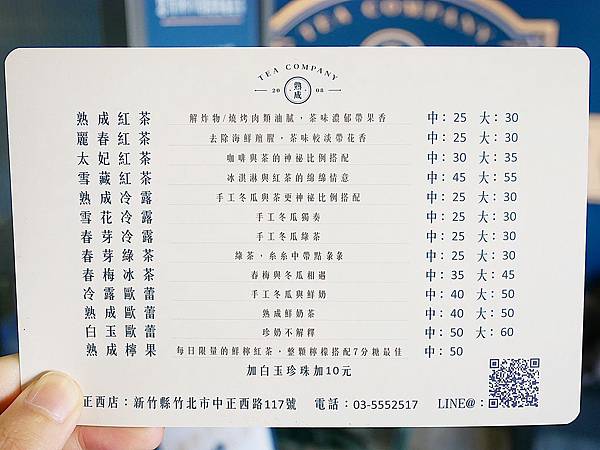 TEA COMPANY
TEA COMPANY
20 熟成 08
熟成紅茶 解炸物/燒烤肉類油膩，茶味濃郁帶果香 中：25 大：30
麗春紅茶 去除海鮮羶腥，茶味較淡帶花香 中：25 大：30
太妃紅茶 咖啡與茶的神祕比例搭配 中：30 大：35
雪藏紅茶 冰淇淋與紅茶的綿綿情意 中：45 大：55
熟成冷露 手工冬瓜與茶更神祕比例搭配 中：25 大：30
雪花冷露 手工冬瓜獨奏 中：25 大：30
春芽冷露 手工冬瓜綠茶 中：25 大：30
春芽綠茶 綠茶，糸糸中帶點彖彖 中：25 大：30
春梅冰茶 春梅與冬瓜相遇 中：35 大：45
冷露歐蕾 手工冬瓜與鮮奶 中：40 大：50
熟成歐蕾 熟成鮮奶茶 中：40 大：50
白玉歐蕾 珍奶不解釋 中：50 大：60
熟成檸果 每日限量的鮮檸紅茶，整顆檸檬搭配7分糖最佳 中：50
加白玉珍珠加10元
正西店：新竹縣竹北市中正西路117號 電話：03-5552517 LINE@：